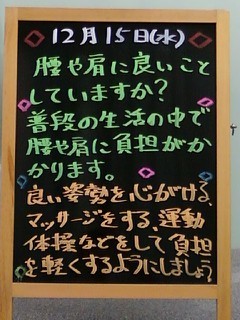 12月15日(水)
腰や肩に良いこと
していますか?
普段の生活の中で
腰や肩に負担がか
かります。
良い姿勢を心がける、
マッサージをする、運動
体操などをして負担
を軽くするようにしましょう